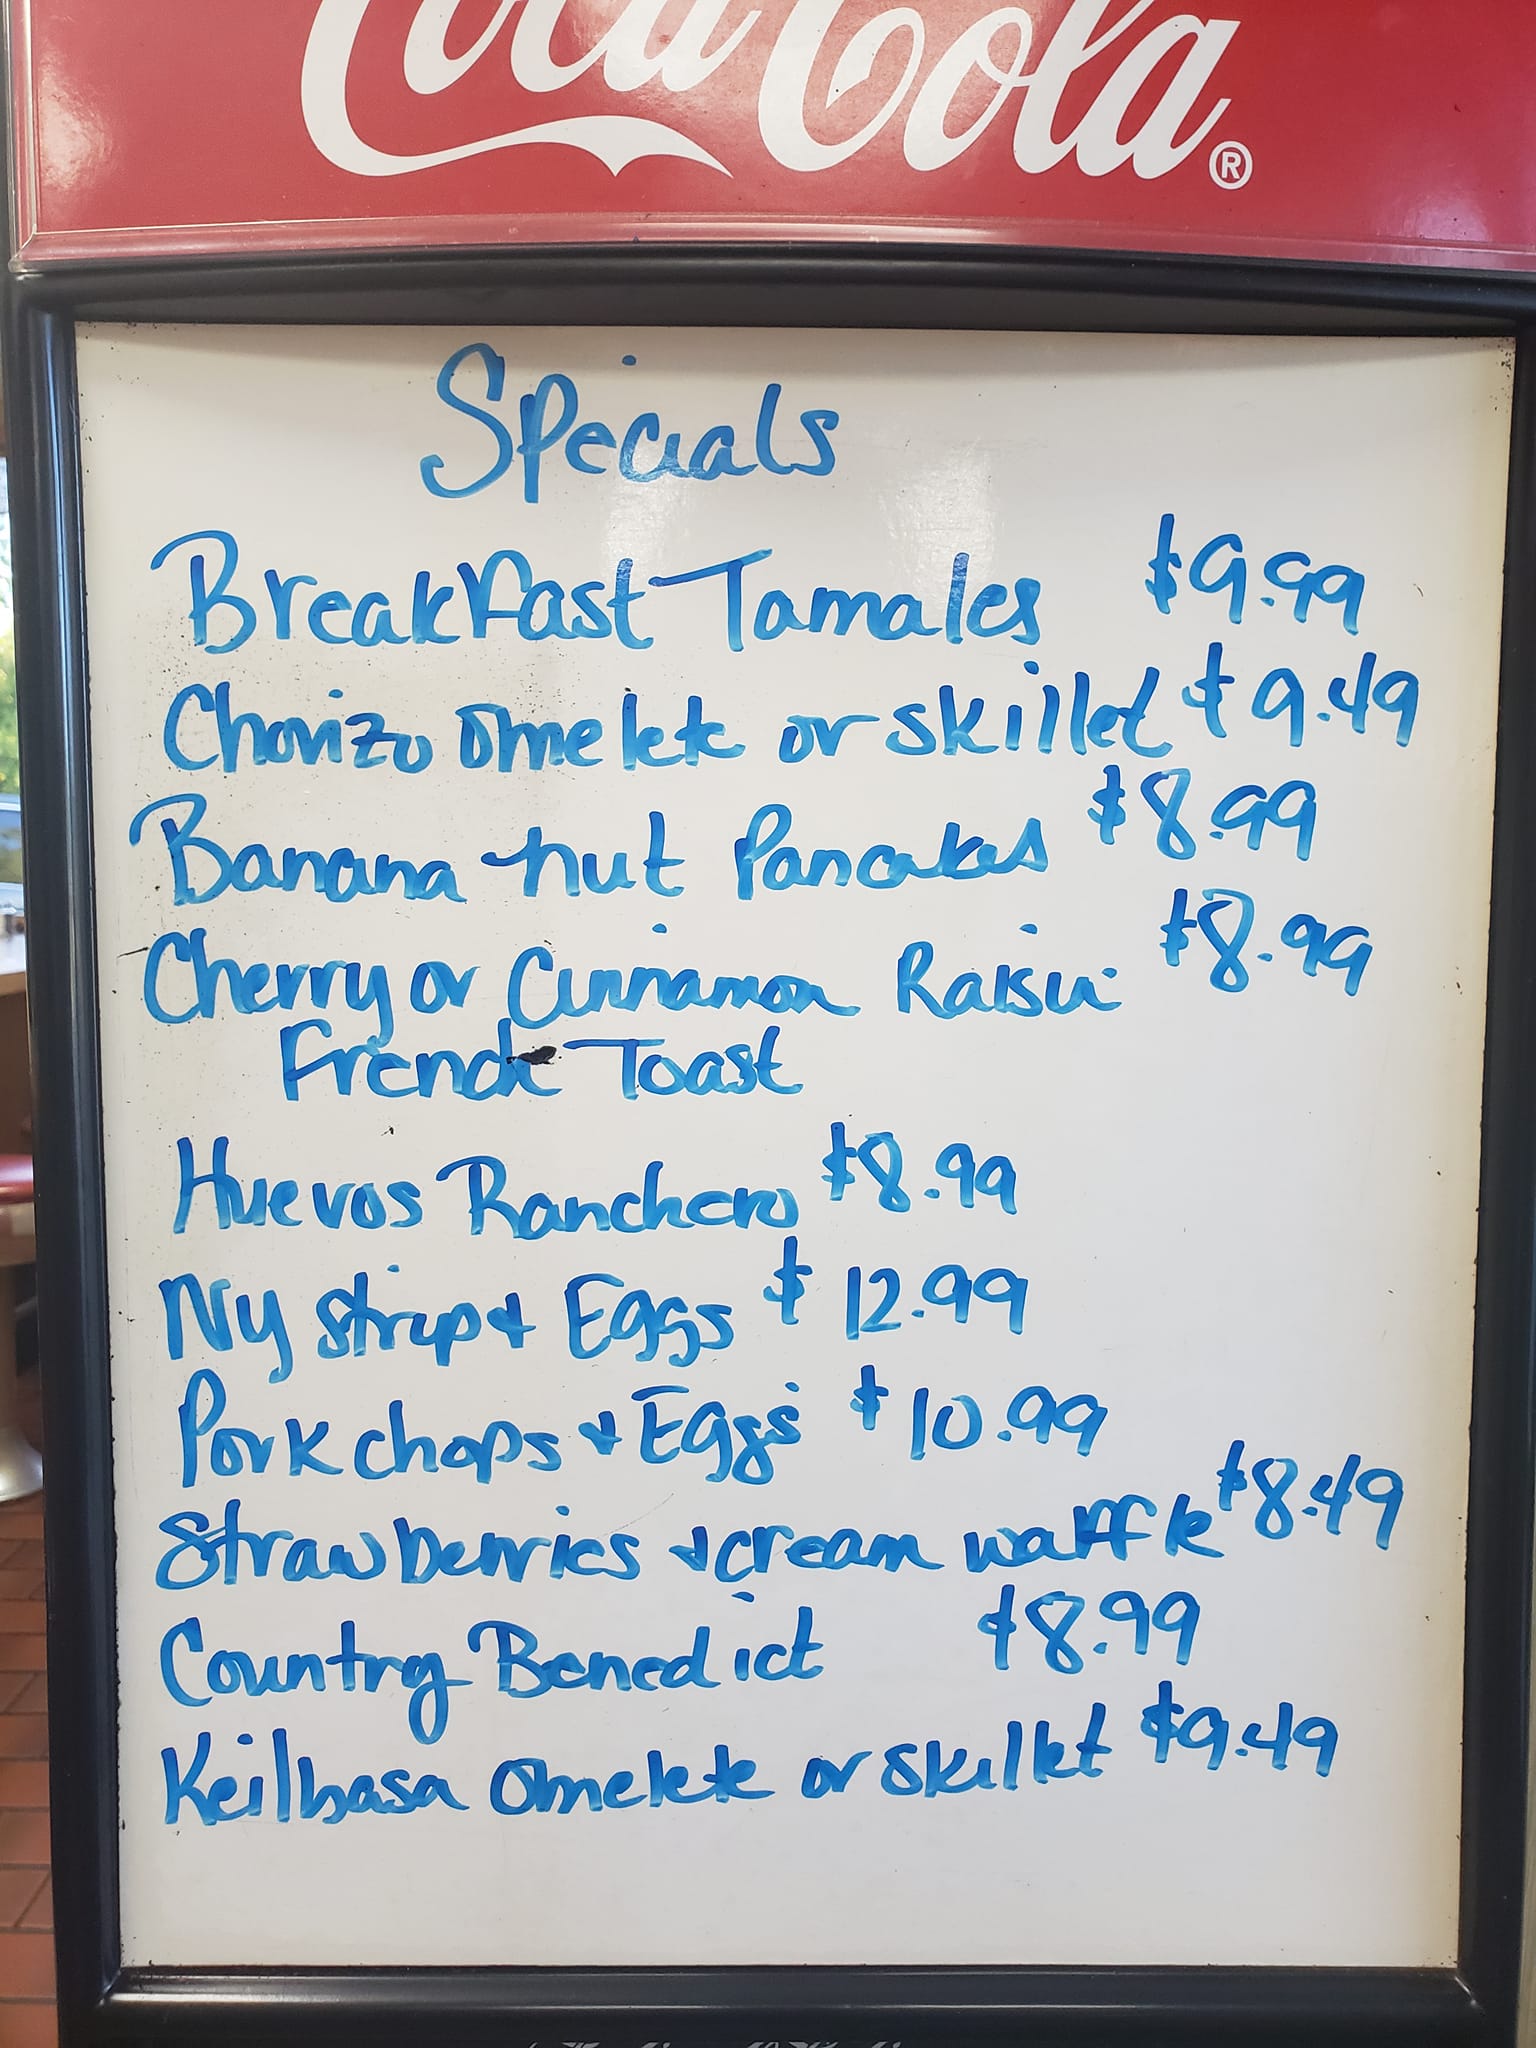 Coca-Cola®
Specials
Breakfast Tamales $9.99
Chorizo omelete or skillet $9.49
Banana nut Pancakes $8.99
Cherry or Cinnamon Raisin $8.99
French Toast
Huevos Ranchero $8.99
Ny strip & Eggs $12.99
Pork chops & Eggs $10.99
Strawberries & cream waffle $8.49
Country Benedict $8.99
Keilbasa omelete or skillet $9.49